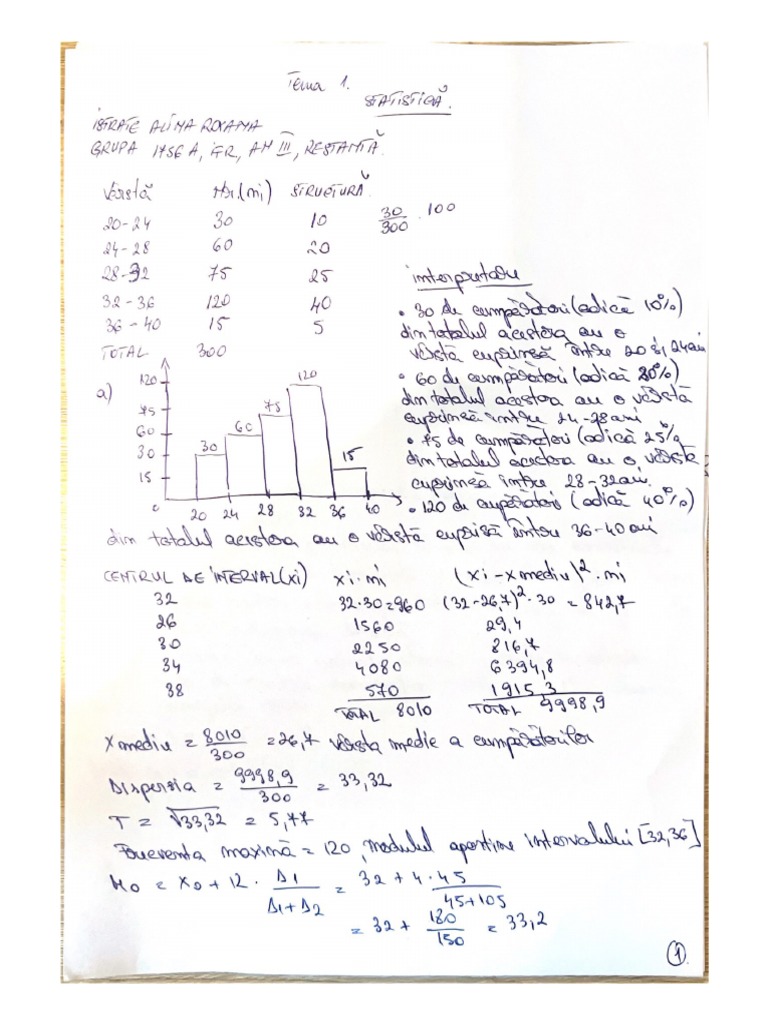 Tema 1.
STATISTICĂ.
ISTRATE ALINA ROXANA
GRUPA 1756 A, FR, AN III, RESTANTĂ
Vârstă Nr.(ni) STRUCTURĂ
20-24 30 10 30/300 · 100
24-28 60 20
28-32 75 25
32-36 120 40
36-40 15 5
TOTAL 300
interpretare
• 30 de cumpărători (adică 10%)
din totalul acestora au o
vârstă cuprinsă între 20 și 24 ani
• 60 de cumpărători (adică 20%)
din totalul acestora au o vârstă
cuprinsă între 24-28 ani
• 75 de cumpărători (adică 25%)
din totalul acestora au o vârstă
cuprinsă între 28-32 ani.
• 120 de cupărători (adică 40%)
din totalul acestora au o vârstă cuprisă între 36-40 ani
a)
120
75
60
30
15
0 20 24 28 32 36 40
30 60 75 120 15
CENTRUL DE INTERVAL(xi) xi·ni (xi-xmediu)²·ni
32 32·30=960 (32-26,7)²·30=842,7
26 1560 29,4
30 2250 816,7
34 4080 6394,8
38 570 1915,3
TOTAL 8010 TOTAL 9998,9
Xmediu = 8010/300 = 26,7 vârsta medie a cumpărătorilor
Dispersia = 9998,9/300 = 33,32
T = √33,32 = 5,77
Frecventa maximă = 120, modulul apartine intervalului [32,36]
Mo = X0 + 12 · Δ1/(Δ1+Δ2) = 32 + 4·45/(45+105)
= 32 + 180/150 = 33,2
1